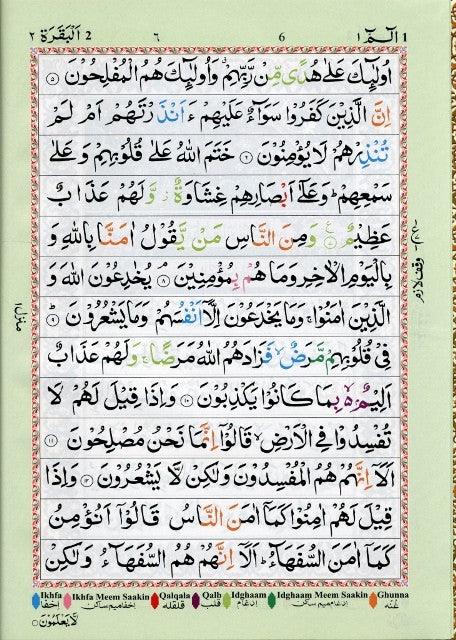 2 اَلْبَقَرَة ٢
٦
6
1 الٓمّٓ ١
اُولٰٓئِكَ عَلٰى هُدًى مِّنْ رَّبِّهِمْ وَاُولٰٓئِكَ هُمُ الْمُفْلِحُوْنَ ۝٥
اِنَّ الَّذِيْنَ كَفَرُوْا سَوَآءٌ عَلَيْهِمْ ءَاَنْذَرْتَهُمْ اَمْ لَمْ
تُنْذِرْهُمْ لَا يُؤْمِنُوْنَ ۝٦ خَتَمَ اللّٰهُ عَلٰى قُلُوْبِهِمْ وَعَلٰى
سَمْعِهِمْ ؕ وَعَلٰٓى اَبْصَارِهِمْ غِشَاوَةٌ ؗ وَّلَهُمْ عَذَابٌ
عَظِيْمٌ ۝٧ وَمِنَ النَّاسِ مَنْ يَّقُوْلُ اٰمَنَّا بِاللّٰهِ وَ
بِالْيَوْمِ الْاٰخِرِ وَمَا هُمْ بِمُؤْمِنِيْنَ ۝٨ يُخٰدِعُوْنَ اللّٰهَ وَ
الَّذِيْنَ اٰمَنُوْا ۚ وَمَا يَخْدَعُوْنَ اِلَّاۤ اَنْفُسَهُمْ وَمَا يَشْعُرُوْنَ ۝٩
فِيْ قُلُوْبِهِمْ مَّرَضٌ ۙ فَزَادَهُمُ اللّٰهُ مَرَضًا ۚ وَلَهُمْ عَذَابٌ
اَلِيْمٌ ۢ ۙ بِمَا كَانُوْا يَكْذِبُوْنَ ۝١٠ وَاِذَا قِيْلَ لَهُمْ لَا
تُفْسِدُوْا فِي الْاَرْضِ ۙ قَالُوْٓا اِنَّمَا نَحْنُ مُصْلِحُوْنَ ۝١١
اَلَآ اِنَّهُمْ هُمُ الْمُفْسِدُوْنَ وَلٰكِنْ لَّا يَشْعُرُوْنَ ۝١٢ وَاِذَا
قِيْلَ لَهُمْ اٰمِنُوْا كَمَآ اٰمَنَ النَّاسُ قَالُوْٓا اَنُؤْمِنُ
كَمَآ اٰمَنَ السُّفَهَآءُ ؕ اَلَآ اِنَّهُمْ هُمُ السُّفَهَآءُ وَلٰكِنْ
وقف لازم
منزل ١
Ikhfa اخفا
Ikhfa Meem Saakin اخفا میم ساکن
Qalqala قلقله
Qalb قلب
Idghaam ادغام
Idghaam Meem Saakin ادغام میم ساکن
Ghunna غنه
لَّا يَعْلَمُوْنَ